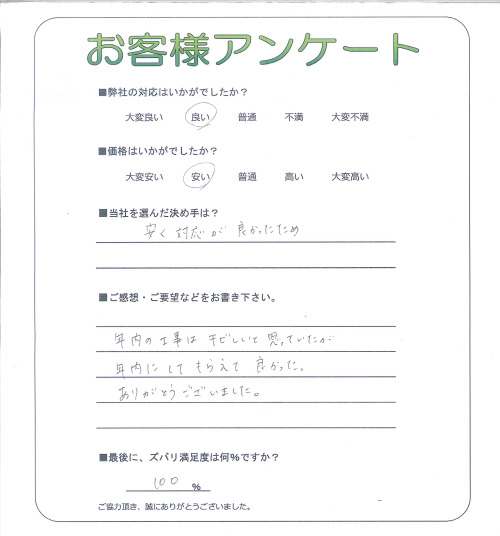 お客様アンケート
■弊社の対応はいかがでしたか？
大変良い 良い 普通 不満 大変不満
■価格はいかがでしたか？
大変安い 安い 普通 高い 大変高い
■当社を選んだ決め手は？
安く対応が良かったため
■ご感想・ご要望などをお書き下さい。
年内の工事はキビしいと思っていたが
年内にしてもらえて良かった。
ありがとうございました。
■最後に、ズバリ満足度は何％ですか？
100 ％
ご協力頂き、誠にありがとうございました。